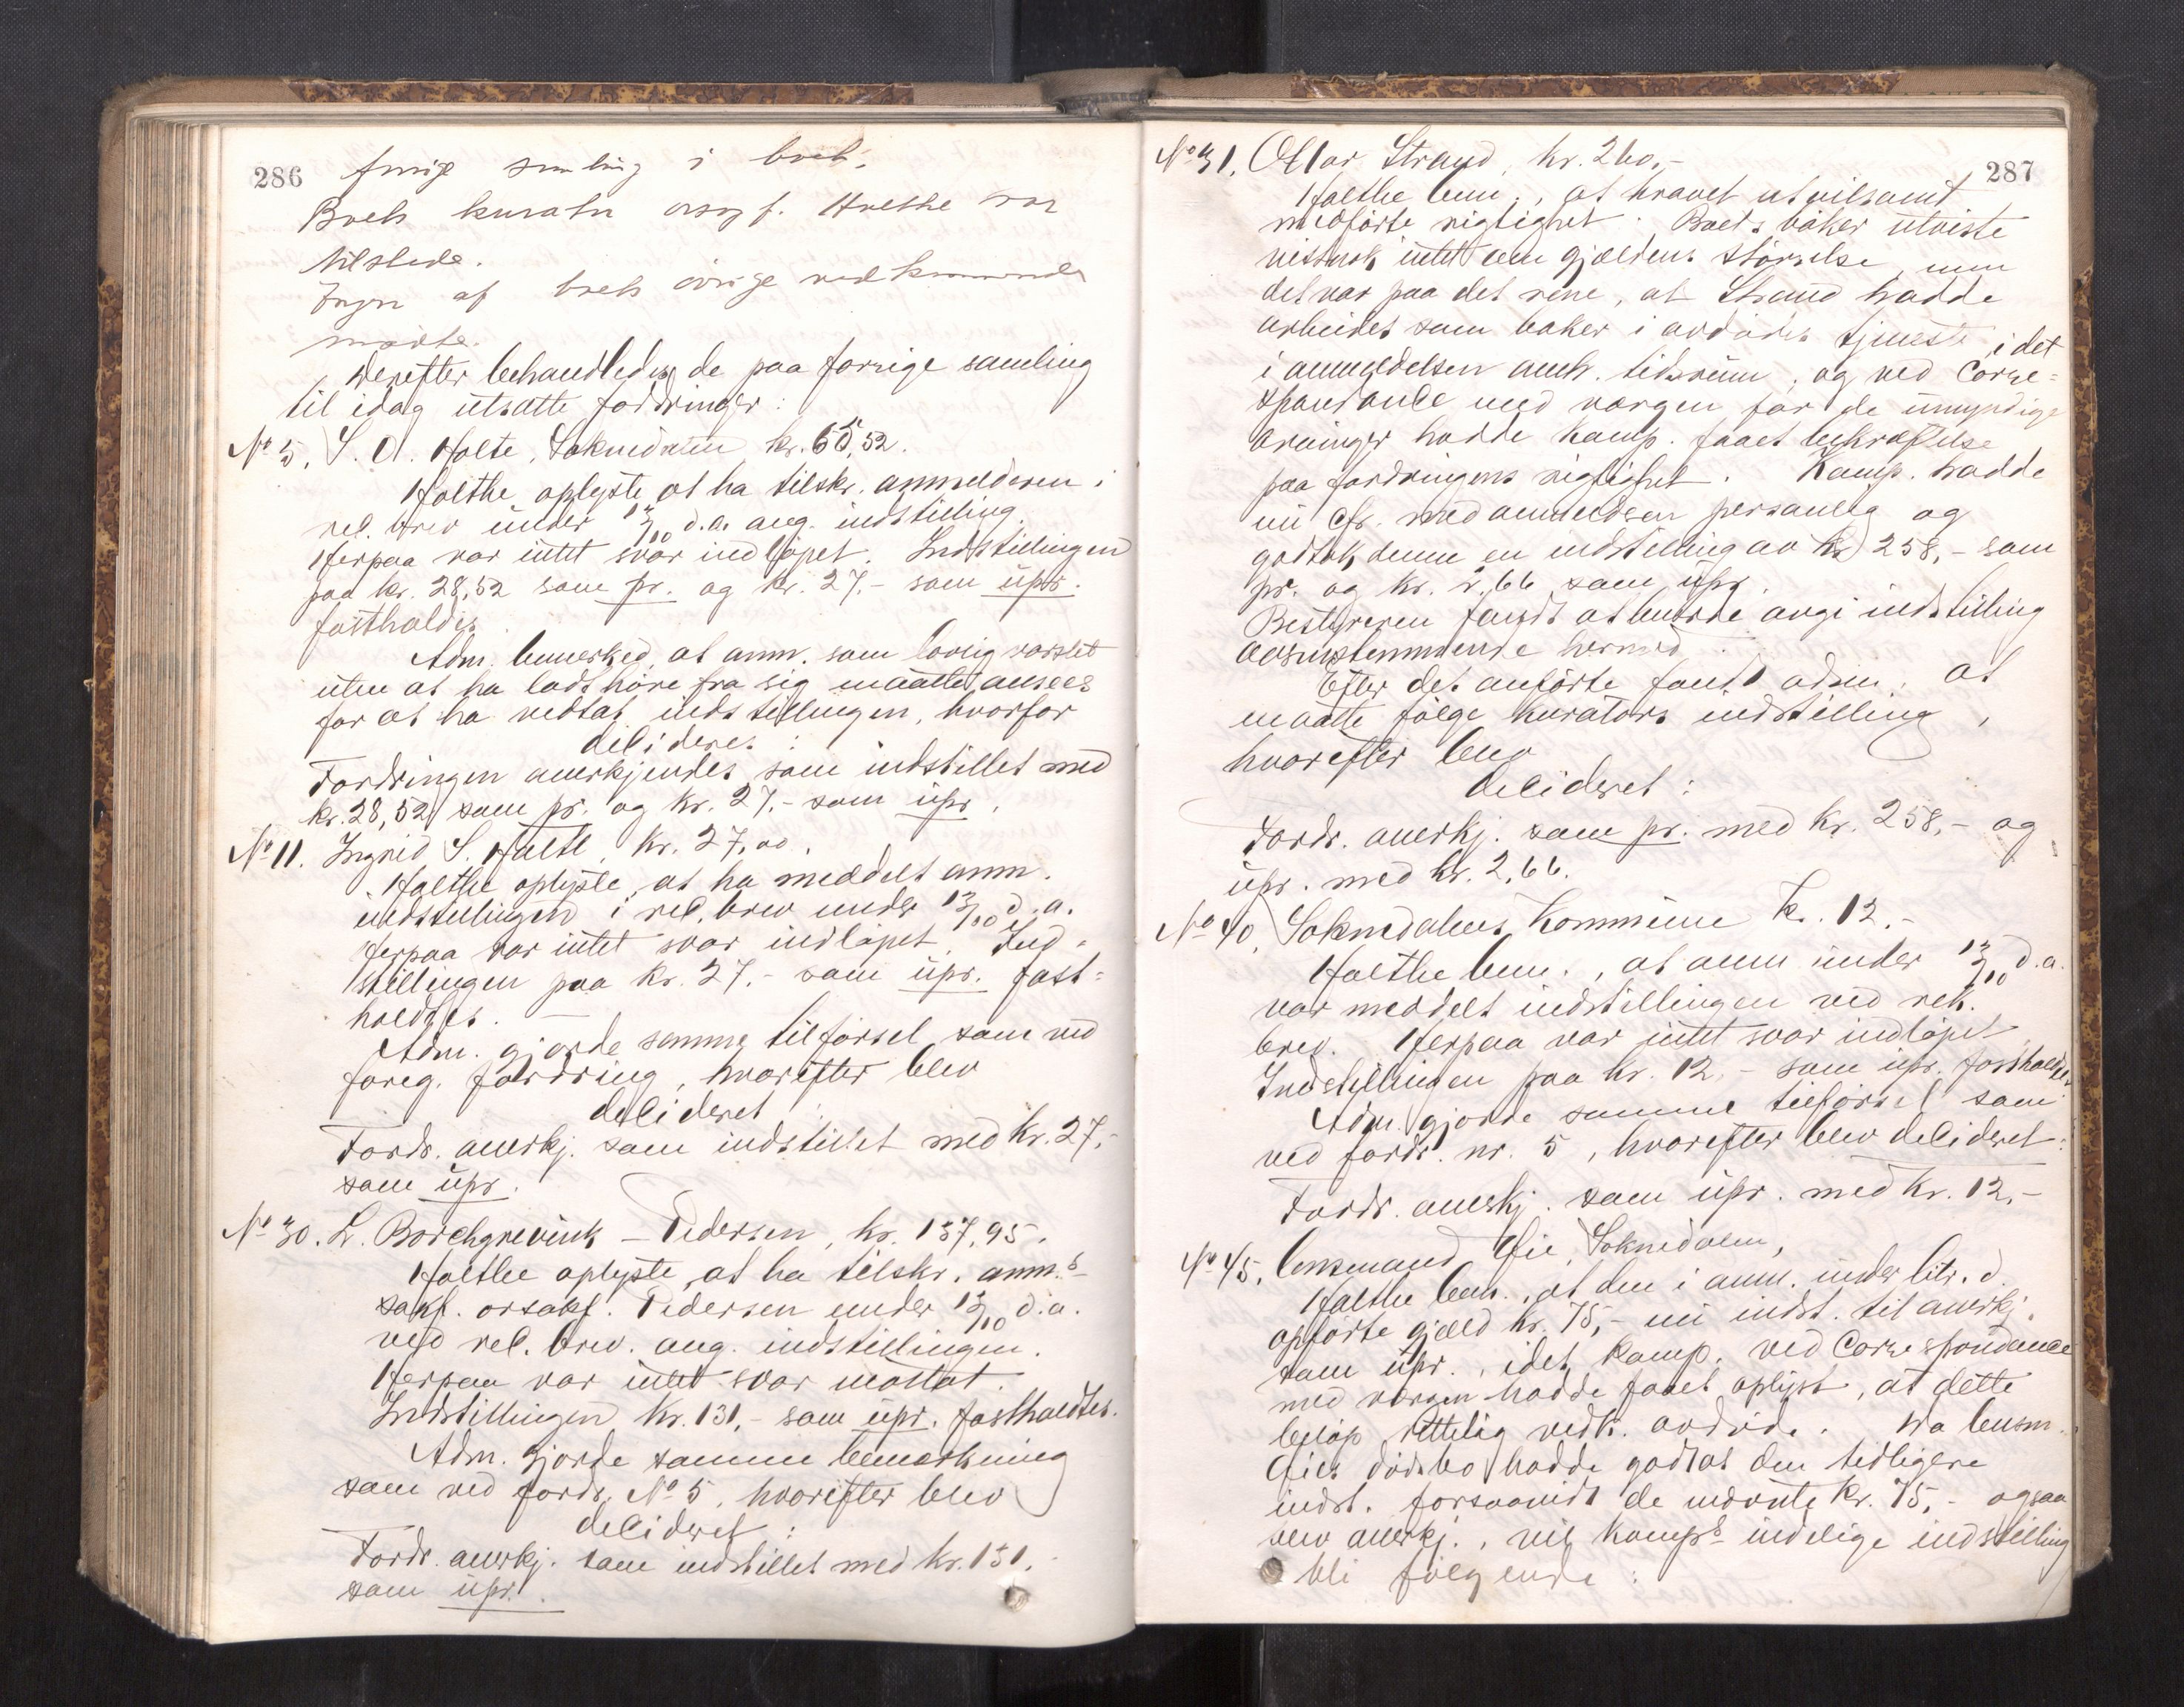 286
forrige samling i boet.
Boets kurator orsagf. Holthe var
tilstede.
Ingen af boets övrige vedkommende
mödte.
Derefter behandledes de paa forrige samling
til idag utsatte fordringer:
No 5. S. A. Holte, Soknedalen kr. 55,52.
Holthe oplyste at ha tilskr. anmelderen i
rek. brev under 13/10 d.a. ang. indstilling.
Herpaa var intet svar indlöpet. Indstillingen
paa kr. 28,52 som pr. og kr. 27,- som upr.
fastholdes.
Adm. bemerked, at anm. som lovlig varslet
uten at ha ladt höre fra sig maatte ansees
for at ha vedtat indstillingen, hvorfor
decideres:
Fordringen anerkjendes som indstillet med
kr. 28,52 som pr. og kr. 27,- som upr.
No 11. Ingrid S. Holte, kr. 27,00.
Holthe oplyste, at ha meddelt anm.
indstillingen i rek. brev under 13/10 d.a.
Herpaa var intet svar indlöpet. Ind-
stillingen paa kr. 27,- som upr. fast-
holdtes.
Adm. gjorde samme tilförsel som ved
foreg. fordring, hvorefter blev
decideret:
Fordr. anerkj. som indstillet med kr. 27,-
som upr.
No 30. L. Borchgrevink - Pedersen, kr. 137,95.
Holthe oplyste, at ha tilskr. anm.s
sakf. orsakf. Pedersen under 13/10 d.a.
ved rek. brev. ang. indstillingen.
Herpaa var intet svar mottat.
Indstillingen kr. 131,- som upr. fastholdtes.
Adm. gjorde samme bemerkning
som ved fordr. No 5, hvorefter blev
decideret:
Fordr. anerkj. som indstillet med kr. 131,-
som upr.
287
No 31. Ottar Strand, kr. 260,-
Holthe bem., at kravet utvilsomt
medförte rigtighet. Boets böker utviste
vistnok intet om gjældens störrelse, men
det var paa det rene, at Strand hadde
arbeidet som baker i avdödes tjeneste i det
i anmeldelsen anh. tidsrum, og ved Corre-
spondance med vergen for de umyndige
arvinger hadde komp. faaet bekræftelse
paa fordringens rigtighet. Komp. hadde
nu cfr. med anmelderen personlig og
godtok denne en indstilling av kr. 258,- som
pr. og kr. 2,66 som upr.
Bestyreren fandt at burde avgi indstilling
overensstemmende hermed.
Efter det anförte fandt adm. at
maatte fölge kurators indstilling,
hvorefter blev
decideret:
Fordr. anerkj. som pr. med kr. 258,- og
upr. med kr. 2,66.
No 40. Soknedalens Kommune k. 12,-
Holthe bem., at anm. under 13/10 d.a.
var meddelt indstillingen ved rek.
brev. Herpaa var intet svar indlöpet.
Indstillingen paa kr. 12,- som upr. fastholdtes
Adm. gjorde samme tilförsel som
ved fordr. nr. 5, hvorefter blev decideret:
Fordr. anerkj. som upr. med kr. 12,-
No 45. lensmand Gie, Soknedalen,
Holthe bem., at den i anm. under litr. d.
opförte gjæld kr. 75,- nu indst. til anerkj.
som upr., idet komp. ved Correspondance
med vergen hadde faaet oplyst, at dette
belöp rettelig vedk. avdöde. Da lensm.
Gies dödsbo hadde godtat den tidligere
indst. forsaavidt de nævnte kr. 75,- ogsaa
blev anerkj., vil komps endelige indstilling
bli fölgende: